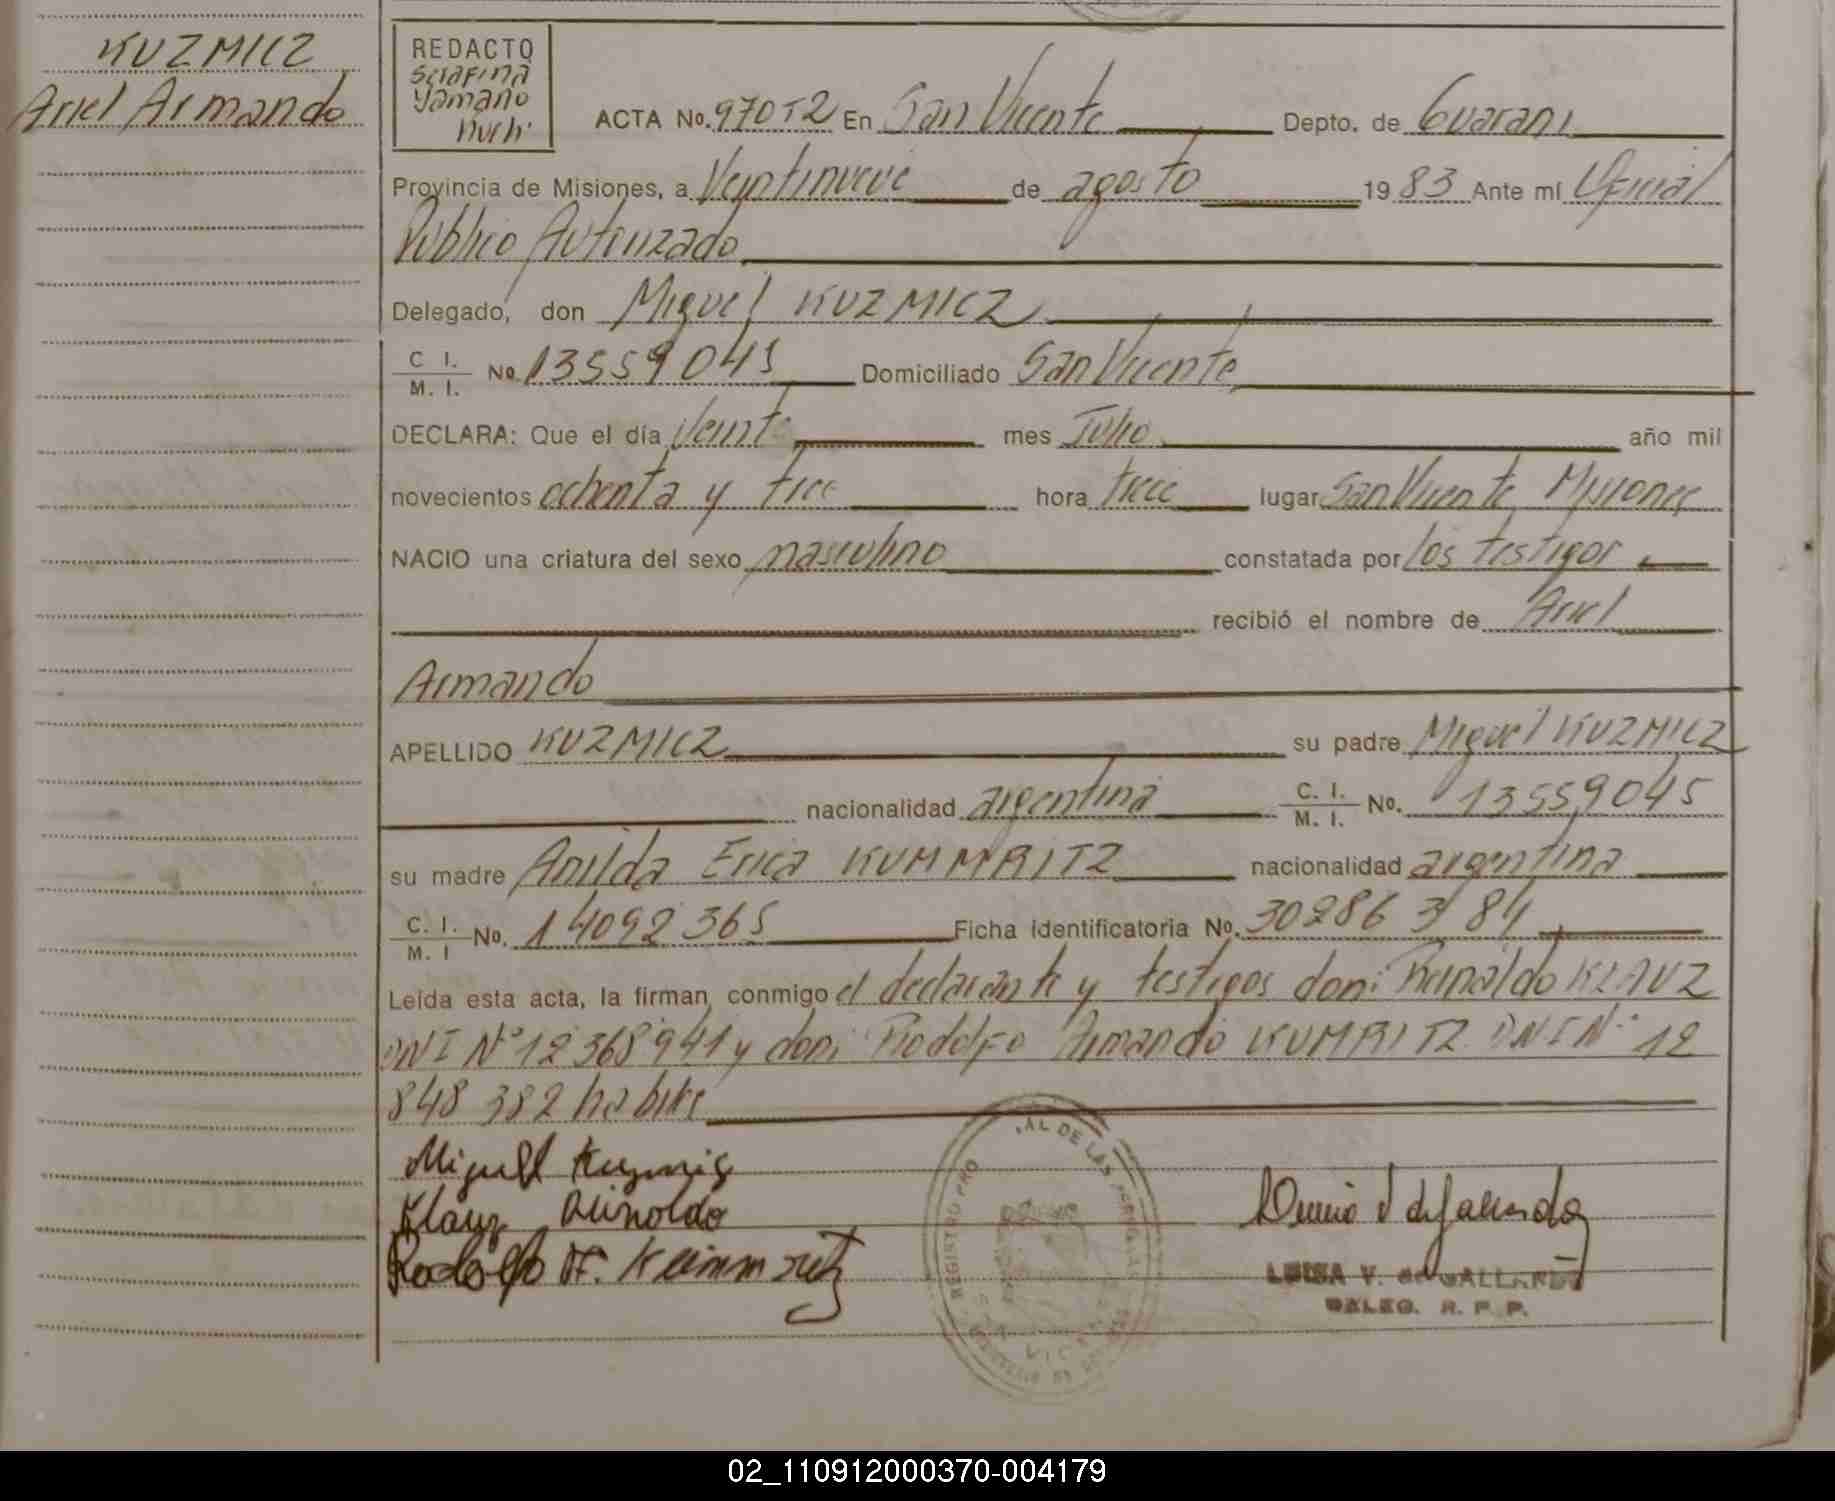 KUZMICZ
Ariel Armando
REDACTO
Serafina
Yamano
ACTA No. 970 T2 En San Vicente Depto. de Guarani
Provincia de Misiones, a Veintinueve de agosto 1983 Ante mí Oficial
Publico Autorizado
Delegado, don Miguel KUZMICZ
C. I.
M. I. No 13559045 Domiciliado San Vicente
DECLARA: Que el día Veinte mes Julio año mil
novecientos ochenta y tres hora trece lugar San Vicente Misiones
NACIO una criatura del sexo masculino constatada por los testigos
recibió el nombre de Ariel
Armando
APELLIDO KUZMICZ su padre Miguel KUZMICZ
nacionalidad argentina C. I. M. I. No. 13559045
su madre Anilda Erica KUMMRITZ nacionalidad argentina
C. I. M. I No. 14092365 Ficha identificatoria No. 30286 3/84
Leída esta acta, la firman conmigo el declarante y testigos don: Reinaldo KLAUZ
DNI N° 12368941 y don: Rodolfo Armando KUMRITZ DNI N° 12
848 382 habiles
Miguel Kuzmicz
Klauz Reinoldo
Rodolfo A. Kummritz
REGISTRO PRO AL DE LAS PERSONAS
LUISA V. de GALLARDO
DELEG. R. P. P.
02_110912000370-004179